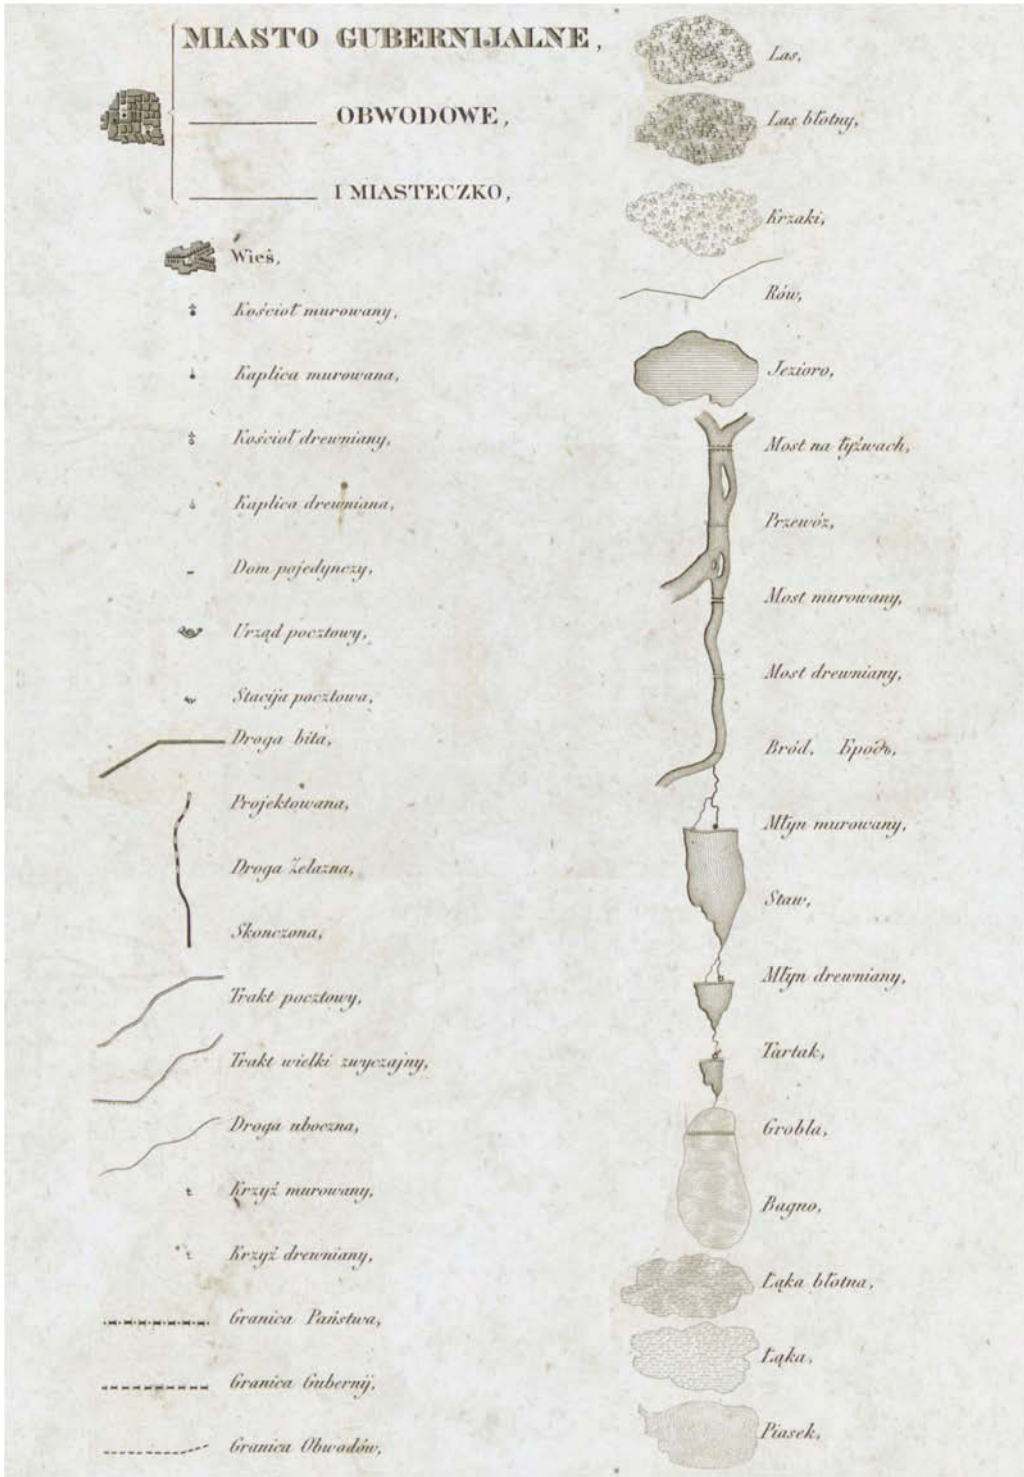 MIASTO GUBERNIJALNE,
OBWODOWE,
I MIASTECZKO,
Wieś,
Kościoł murowany,
Kaplica murowana,
Kościoł drewniany,
Kaplica drewniana,
Dom pojedynczy,
Urząd pocztowy,
Stacija pocztowa,
Droga bita,
Projektowana,
Droga Żelazna,
Skonczona,
Trakt pocztowy,
Trakt wielki zwyczajny,
Droga uboczna,
Krzyż murowany,
Krzyż drewniany,
Granica Państwa,
Granica Gubernij,
Granica Obwodów,
Las,
Las błotny,
Krzaki,
Rów,
Jezioro,
Most na łyżwach,
Przewóz,
Most murowany,
Most drewniany,
Bród, Бродъ,
Młyn murowany,
Staw,
Młyn drewniany,
Tartak,
Grobla,
Bagno,
Łąka błotna,
Łąka,
Piasek,